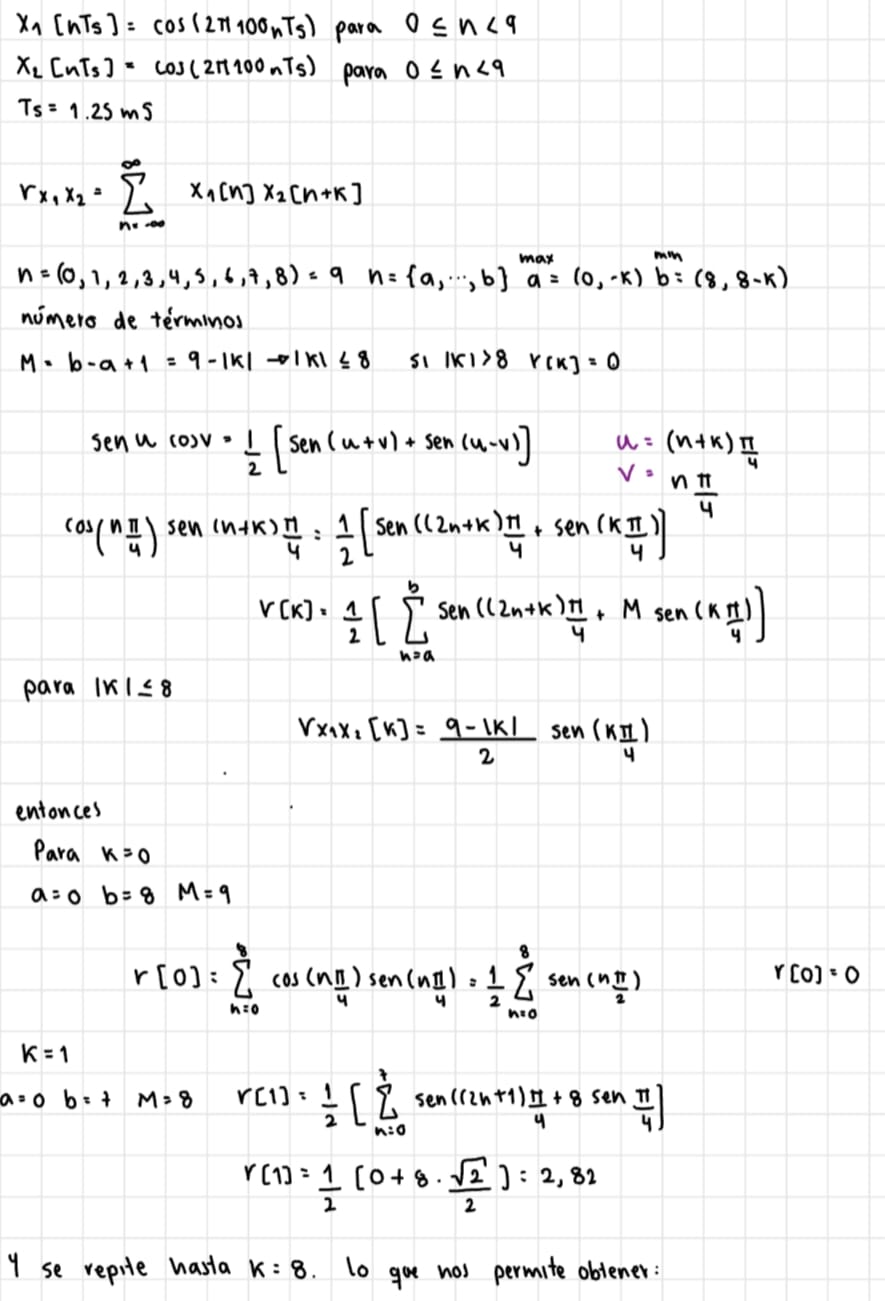 X₁ [nTs] = cos(2π100nTs) para 0 ≤ n < 9
X₂ [nTs] = cos(2π100nTs) para 0 ≤ n < 9
Ts = 1.25 mS
r x₁ x₂ = ∑_{n=-∞}^{∞} x₁[n] x₂[n+k]
n = (0, 1, 2, 3, 4, 5, 6, 7, 8) = 9 n = {a, ..., b} a =^{max} (0, -k) b =^{min} (8, 8-k)
número de términos
M = b - a + 1 = 9 - |k| → |k| ≤ 8 si |k| > 8 r[k] = 0
sen u cos v = 1/2 [sen(u+v) + sen(u-v)] u = (n+k) π/4
v = n π/4
cos(n π/4) sen (n+k) π/4 = 1/2 [sen((2n+k) π/4 + sen (k π/4)]
r[k] = 1/2 [ ∑_{n=a}^{b} sen((2n+k) π/4 + M sen(k π/4)]
para |k| ≤ 8
r x₁x₂ [k] = (9-|k|)/2 sen (k π/4)
entonces
Para k = 0
a = 0 b = 8 M = 9
r[0] = ∑_{n=0}^{8} cos (n π/4) sen(n π/4) = 1/2 ∑_{n=0}^{8} sen (n π/2) r[0] = 0
k = 1
a = 0 b = 7 M = 8 r[1] = 1/2 [ ∑_{n=0}^{7} sen((2n+1) π/4 + 8 sen π/4]
r[1] = 1/2 [0 + 8 · √2/2] = 2,82
Y se repite hasta k = 8. lo que nos permite obtener: